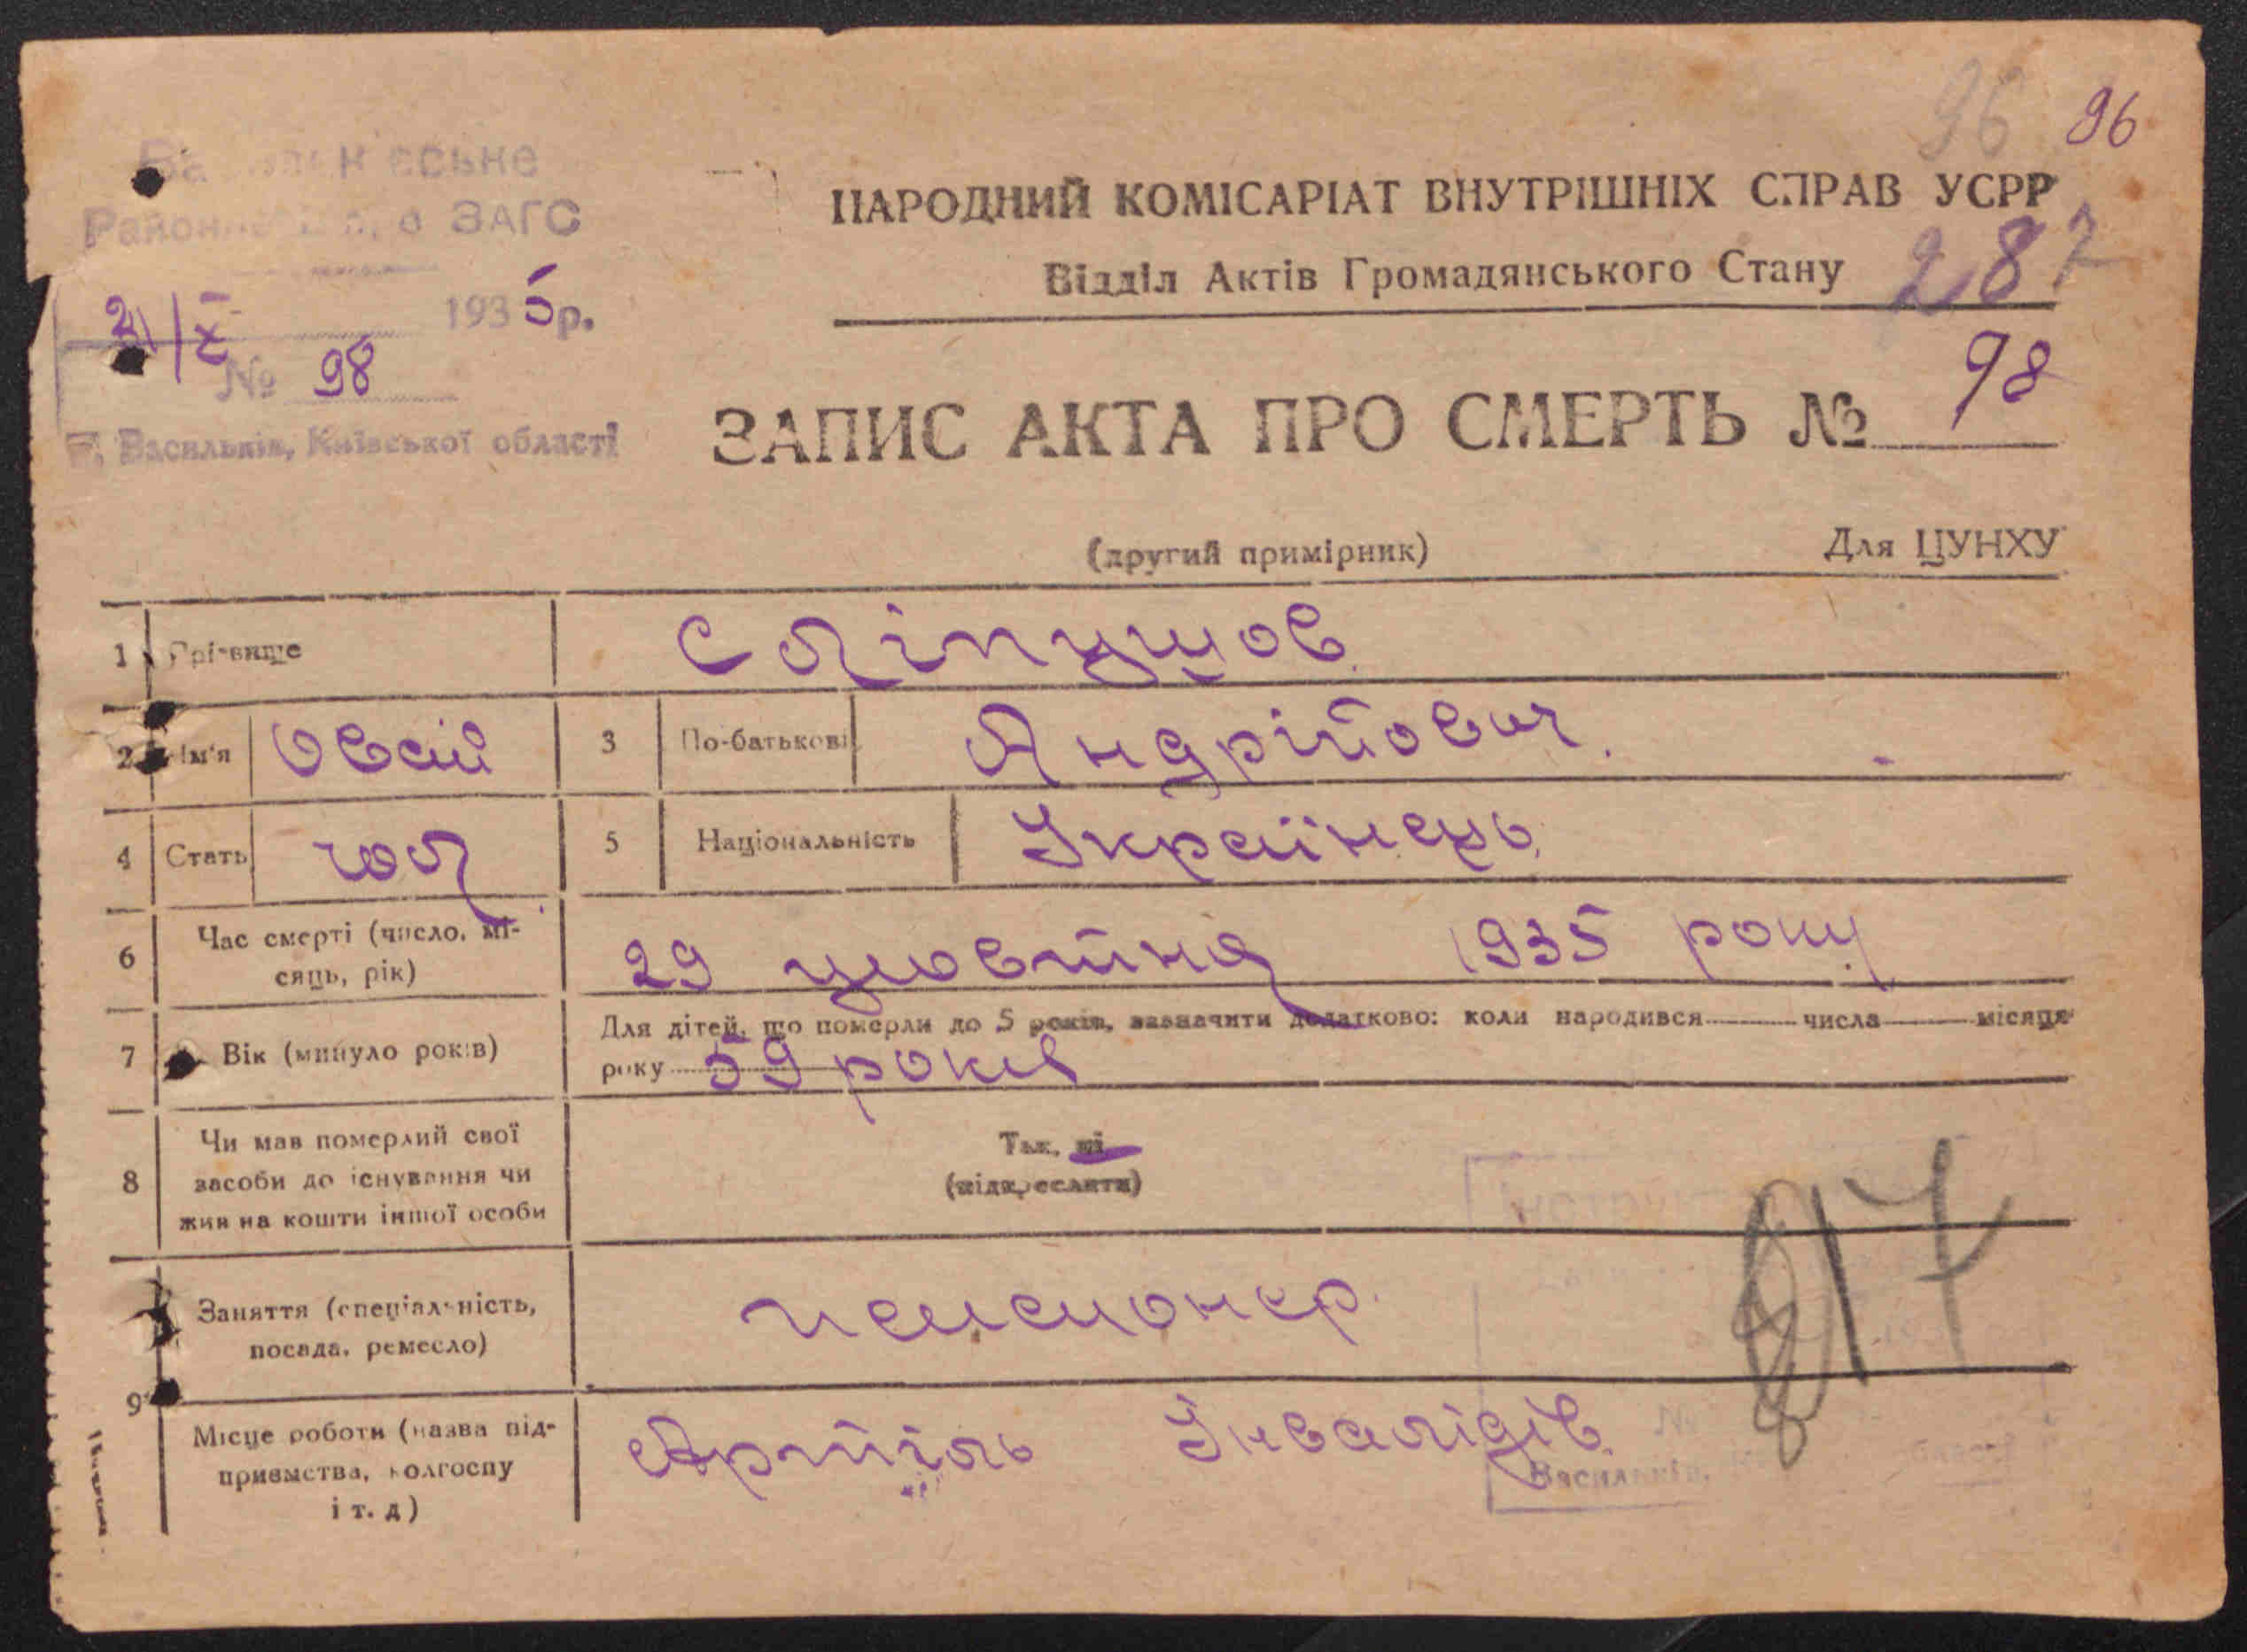 96 96
Районне Бюро ЗАГС
НАРОДНИЙ КОМІСАРІАТ ВНУТРІШНІХ СПРАВ УСРР
Відділ Актів Громадянського Стану 287
1935р.
№ 98
м. Васильків, Київської області
ЗАПИС АКТА ПРО СМЕРТЬ № 98
(другий примірник) Для ЦУНХУ
1 Прізвище Сліпушов
2 Ім'я Овсій 3 По-батькові Андрійович.
4 Стать чол. 5 Національність Українець
6 Час смерті (число, мі-
сяць, рік) 29 жовтня 1935 року
7 Вік (минуло років) Для дітей, що померли до 5 років, зазначити додатково: коли народився числа місяця
року 59 років
8 Чи мав померлий свої
засоби до існування чи
жив на кошти іншої особи
Так, ні
(підкреслити)
9 Заняття (спеціальність,
посада, ремесло) пенсионер.
Місце роботи (назва під-
приємства, колгоспу
і т. д)
Артіль Інвалідів
Васильків,